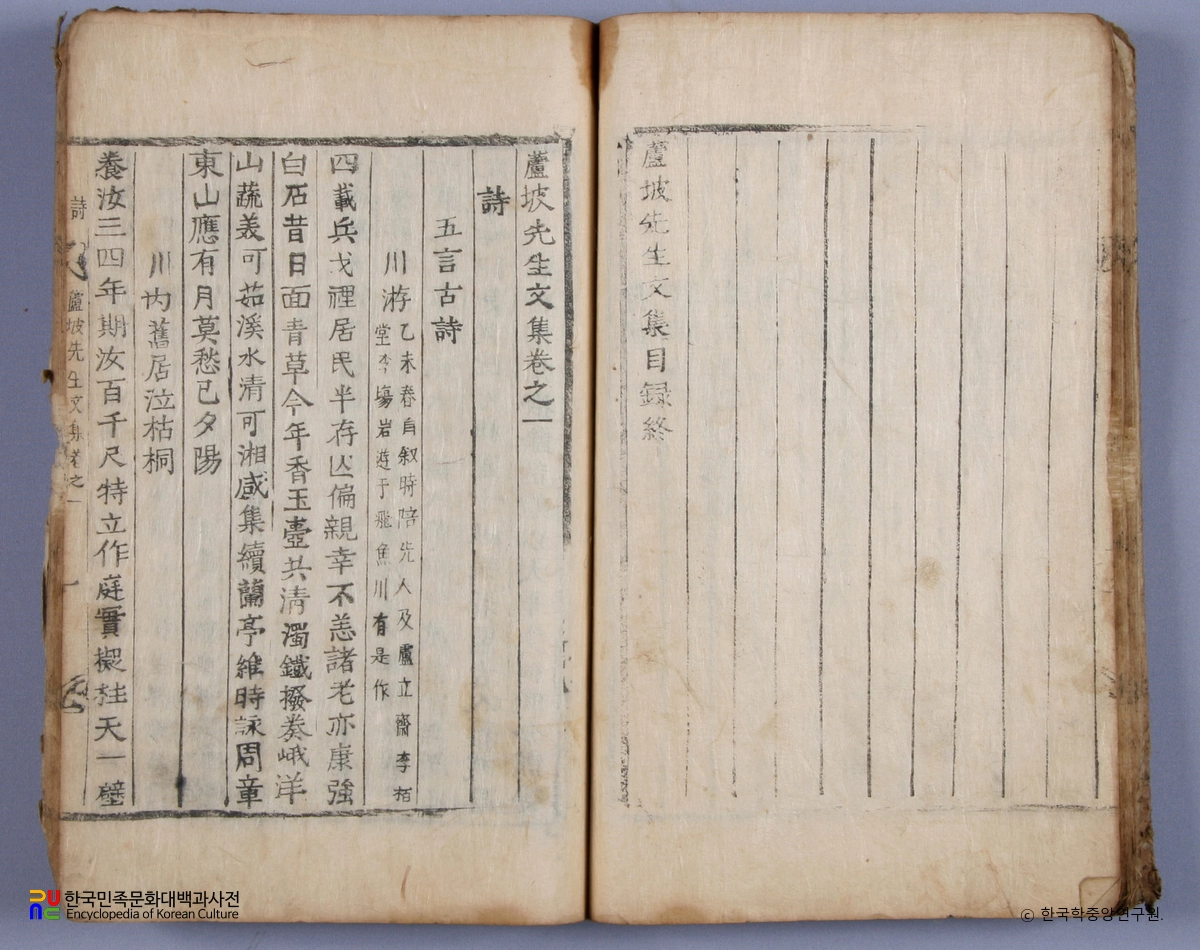 蘆坡先生文集目録終
蘆坡先生文集卷之一
詩
五言古詩
川游 乙未春自叙時陪先人及蘆立齋李栢
堂李塲岩遊于飛魚川有是作
四載兵戈裡居民半存亾偏親幸不恙諸老亦康強
白石昔日面青草今年香玉壷共清濁鐵撥奏峨洋
山蔬羙可茹溪水清可湘咸集續蘭亭維時詠周章
東山應有月莫愁已夕陽
川内舊居泣枯桐
養汝三四年期汝百千尺特立作庭實擬柱天一壁
詩
蘆坡先生文集卷之一
一
한국민족문화대백과사전
Encyclopedia of Korean Culture
© 한국학중앙연구원.